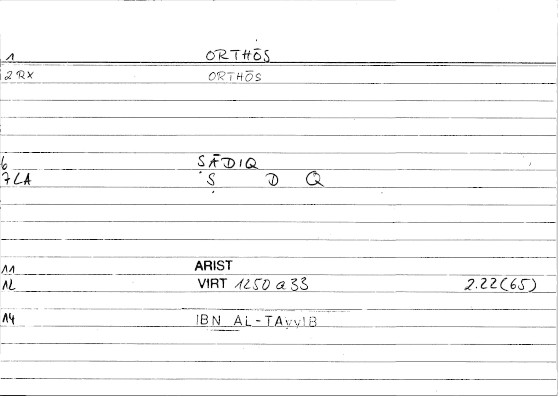 1 ORTHŌS
2 RX ORTHŌS
6 ṢĀDIQ
7 LA Ṣ D Q
11 ARIST
12 VIRT 1250 a 33 2.22(65)
14 IBN AL-TAYYIB